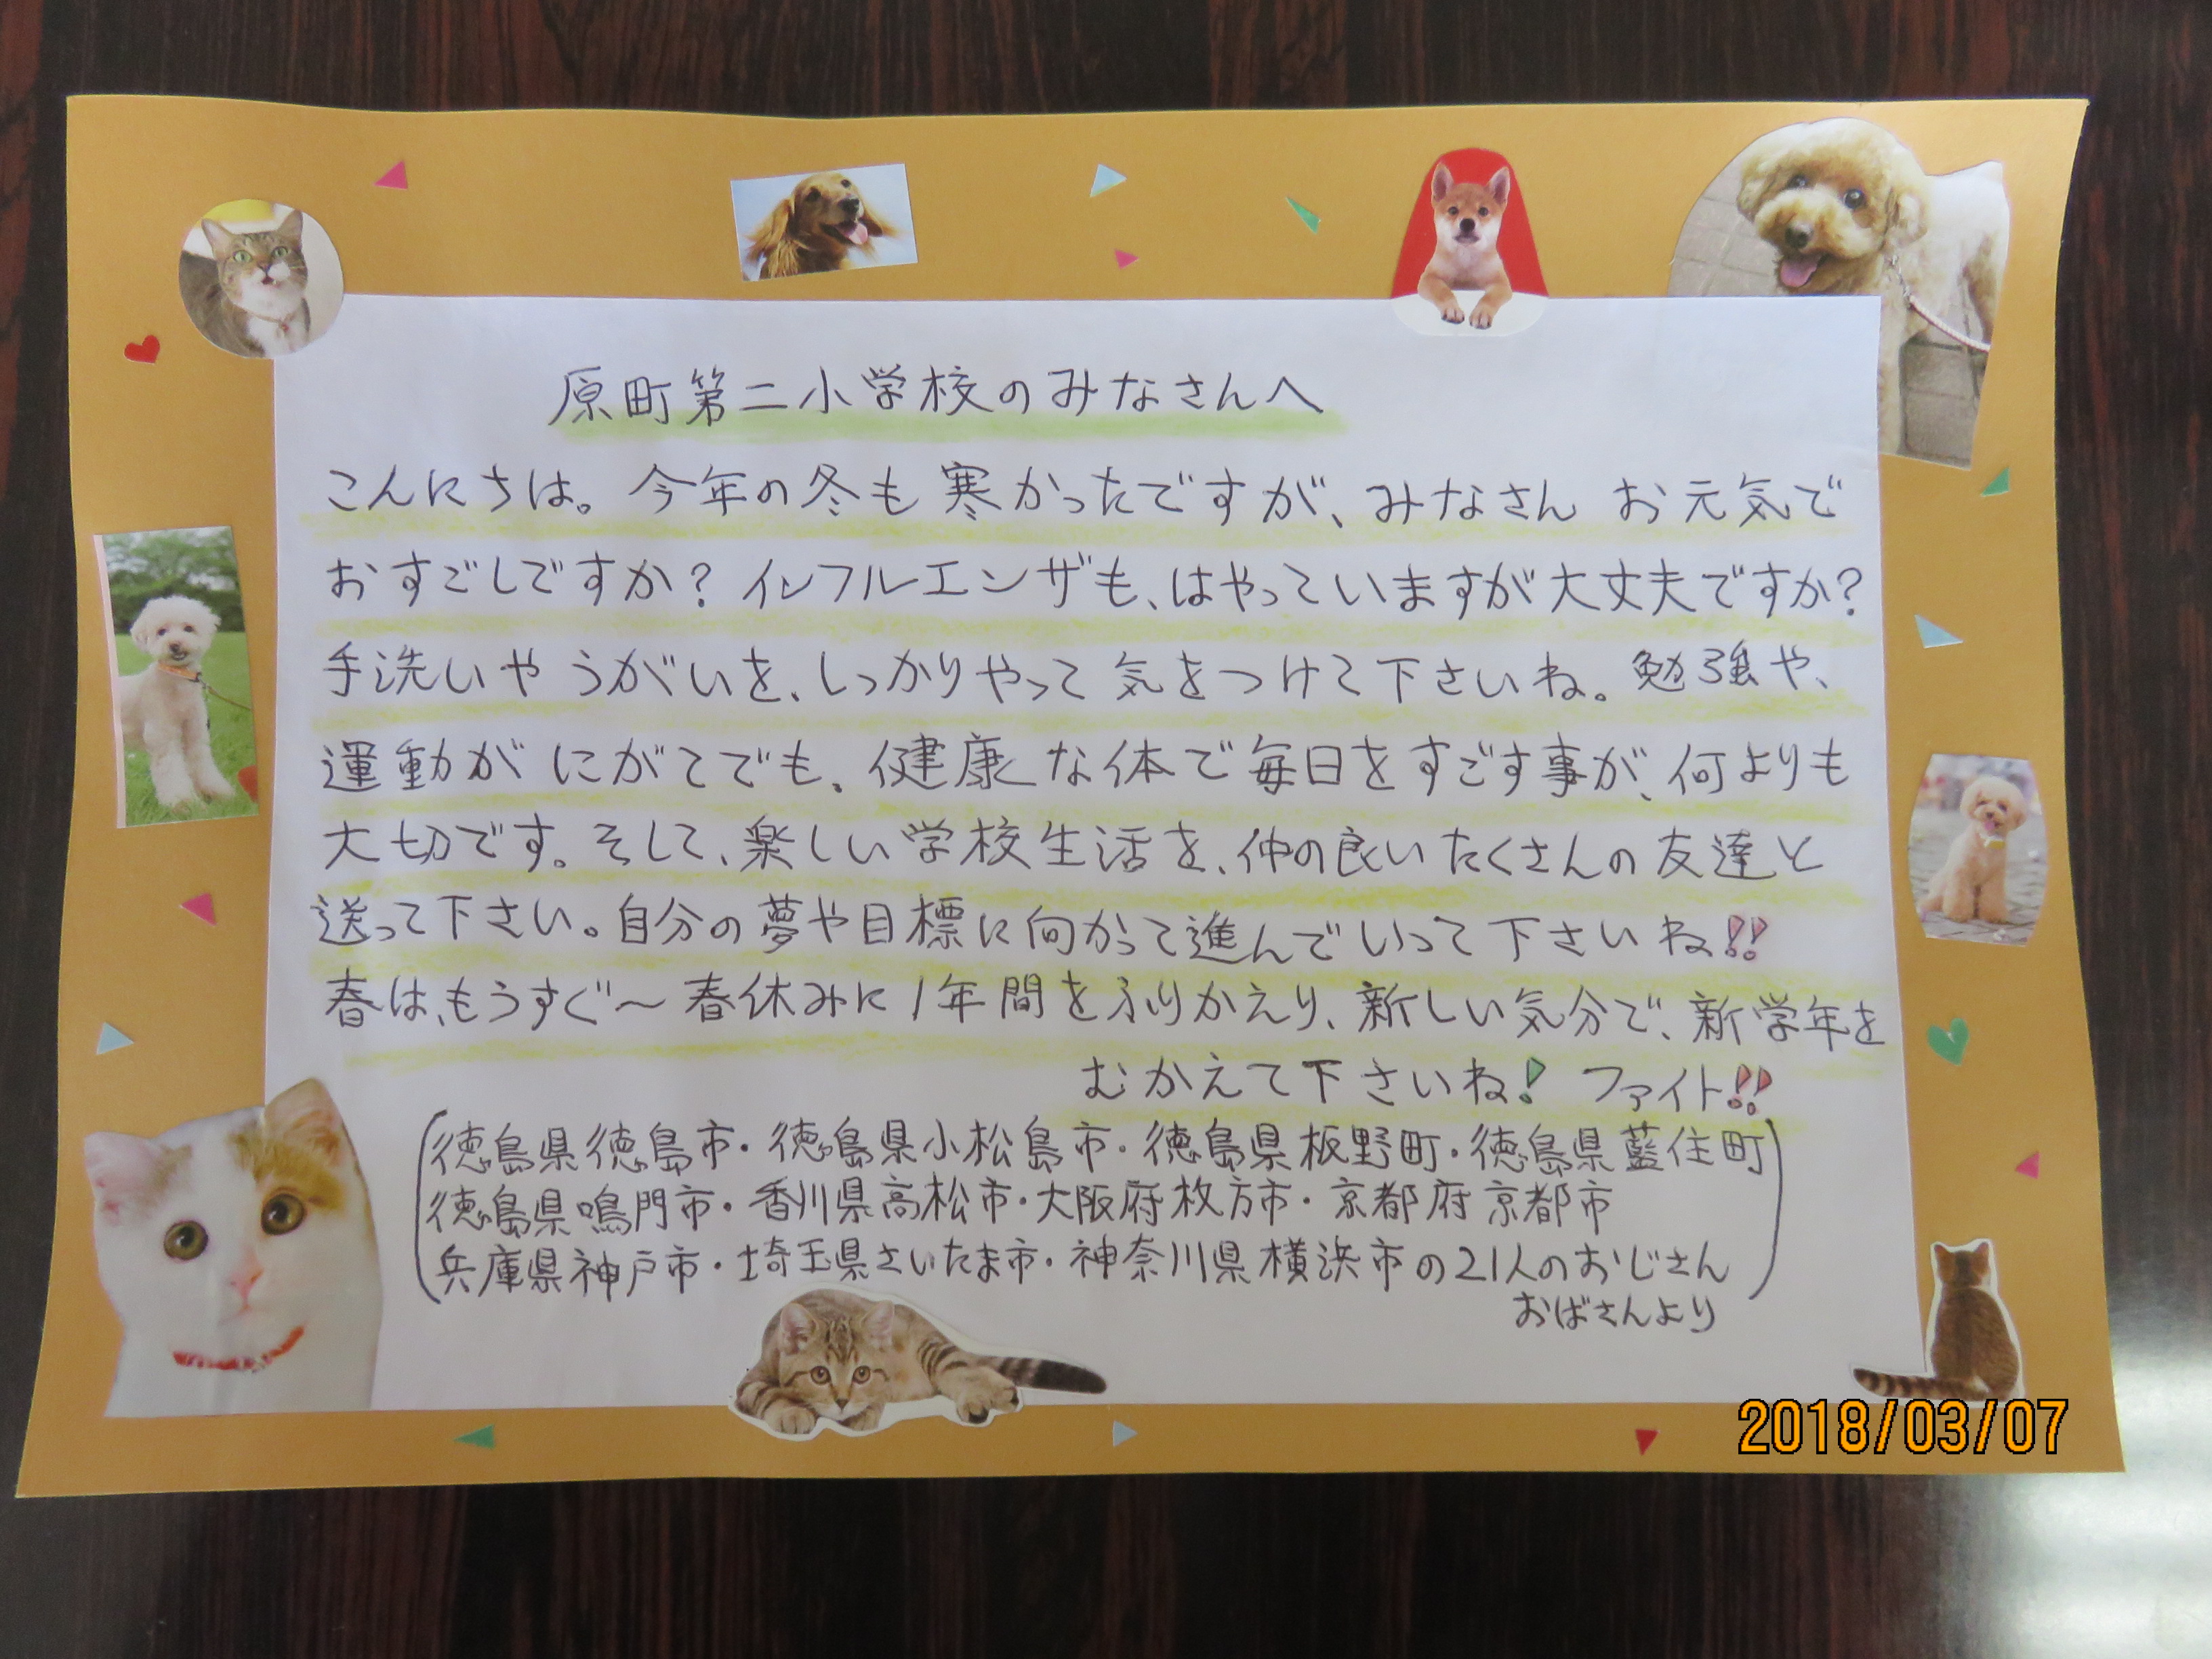 原町第二小学校のみなさんへ
こんにちは。今年の冬も寒かったですが、みなさん お元気で
おすごしですか？インフルエンザも、はやっていますが大丈夫ですか？
手洗いや うがいを、しっかりやって 気をつけて下さいね。勉強や、
運動が にがてでも、健康な体で毎日をすごす事が、何よりも
大切です。そして、楽しい学校生活を、仲の良いたくさんの友達と
送って下さい。自分の夢や目標に向かって進んでいって下さいね!!
春は、もうすぐ〜 春休みに1年間をふりかえり、新しい気分で、新学年を
むかえて下さいね! ファイト!!
(徳島県徳島市・徳島県小松島市・徳島県板野町・徳島県藍住町
徳島県鳴門市・香川県高松市・大阪府枚方市・京都府京都市
兵庫県神戸市・埼玉県さいたま市・神奈川県横浜市の21人のおじさん)
おばさんより
2018/03/07